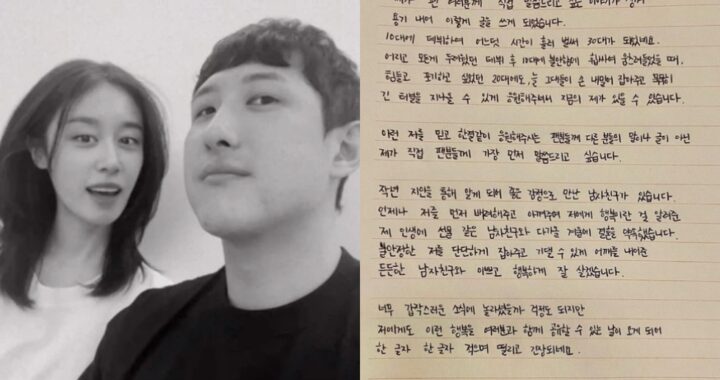 여러분께 직접 말씀드리고 싶은 이야기가 생겨
용기 내어 이렇게 글을 쓰게 되었습니다.
10대에 데뷔하여 어느덧 시간이 흘러 벌써 30대가 되었네요.
어리고 모든게 두려웠던 데뷔 후 10대에 불안함에 휩싸여 흔들렸을 때,
힘들고 포기하고 싶었던 20대에도, 늘 그대들이 손 내밀어 잡아주고 묵묵히
긴 터널을 지나올 수 있게 응원해주셔서 지금의 제가 있을 수 있습니다.
이런 저를 믿고 한결같이 응원해주시는 팬분들께 다른 분들의 말이나 글이 아닌
제가 직접 팬분들께 가장 먼저 말씀드리고 싶습니다.
작년 지인을 통해 알게 되어 좋은 감정으로 만난 남자친구가 있습니다.
언제나 저를 먼저 배려해주고 아껴주며 저에게 행복이란 걸 알려준
제 인생에 선물 같은 남자친구와 다가올 겨울에 결혼을 약속했습니다.
불안정한 저를 단단하게 잡아주고 기댈 수 있게 어깨를 내어준
든든한 남자친구와 이쁘고 행복하게 잘 살겠습니다.
너무 갑작스러운 소식에 놀라셨을까 걱정도 되지만
저에게도 이런 행복을 여러분과 함께 공유할 수 있는 날이 오게 되어
한 글자 한 글자 적으며 떨리고 긴장되네요.